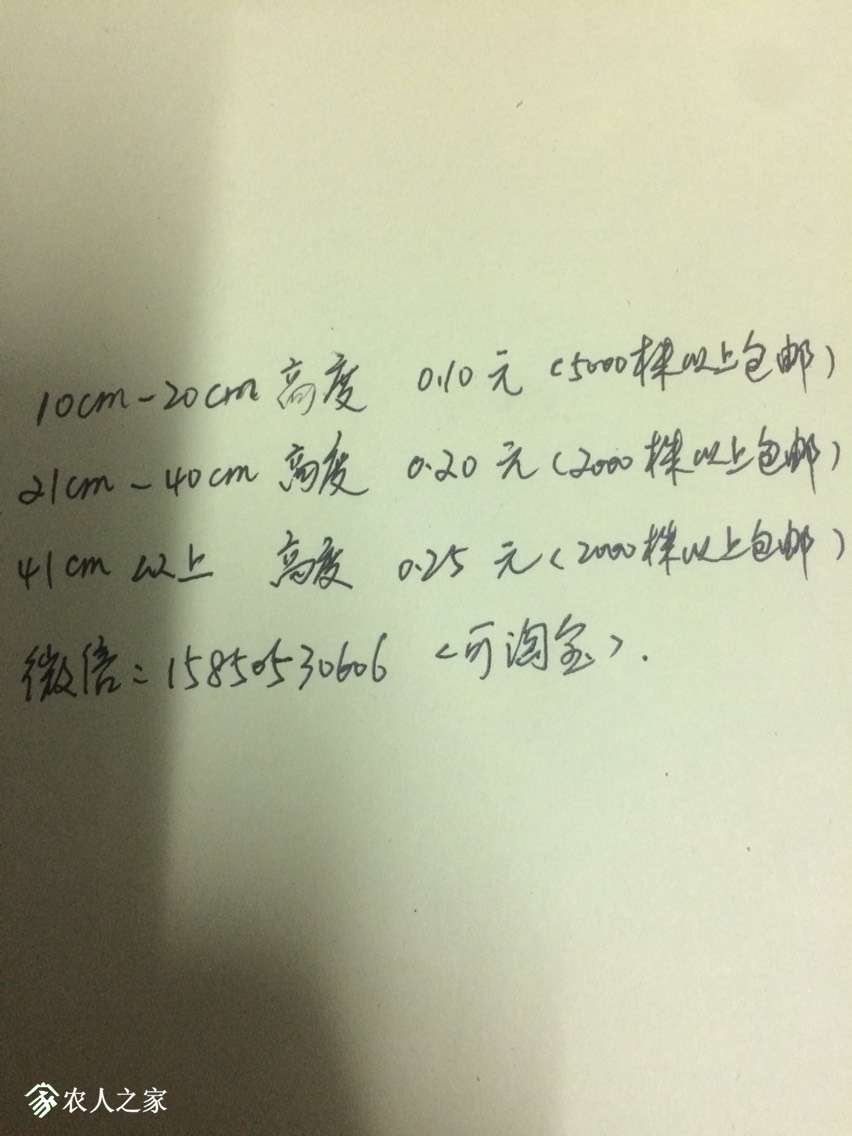 10cm-20cm 高度 0.10元 (5000株以上包邮)
21cm-40cm 高度 0.20元 (2000株以上包邮)
41cm 以上 高度 0.25元 (2000株以上包邮)
微信: 15850530606 (可淘宝).
农人之家